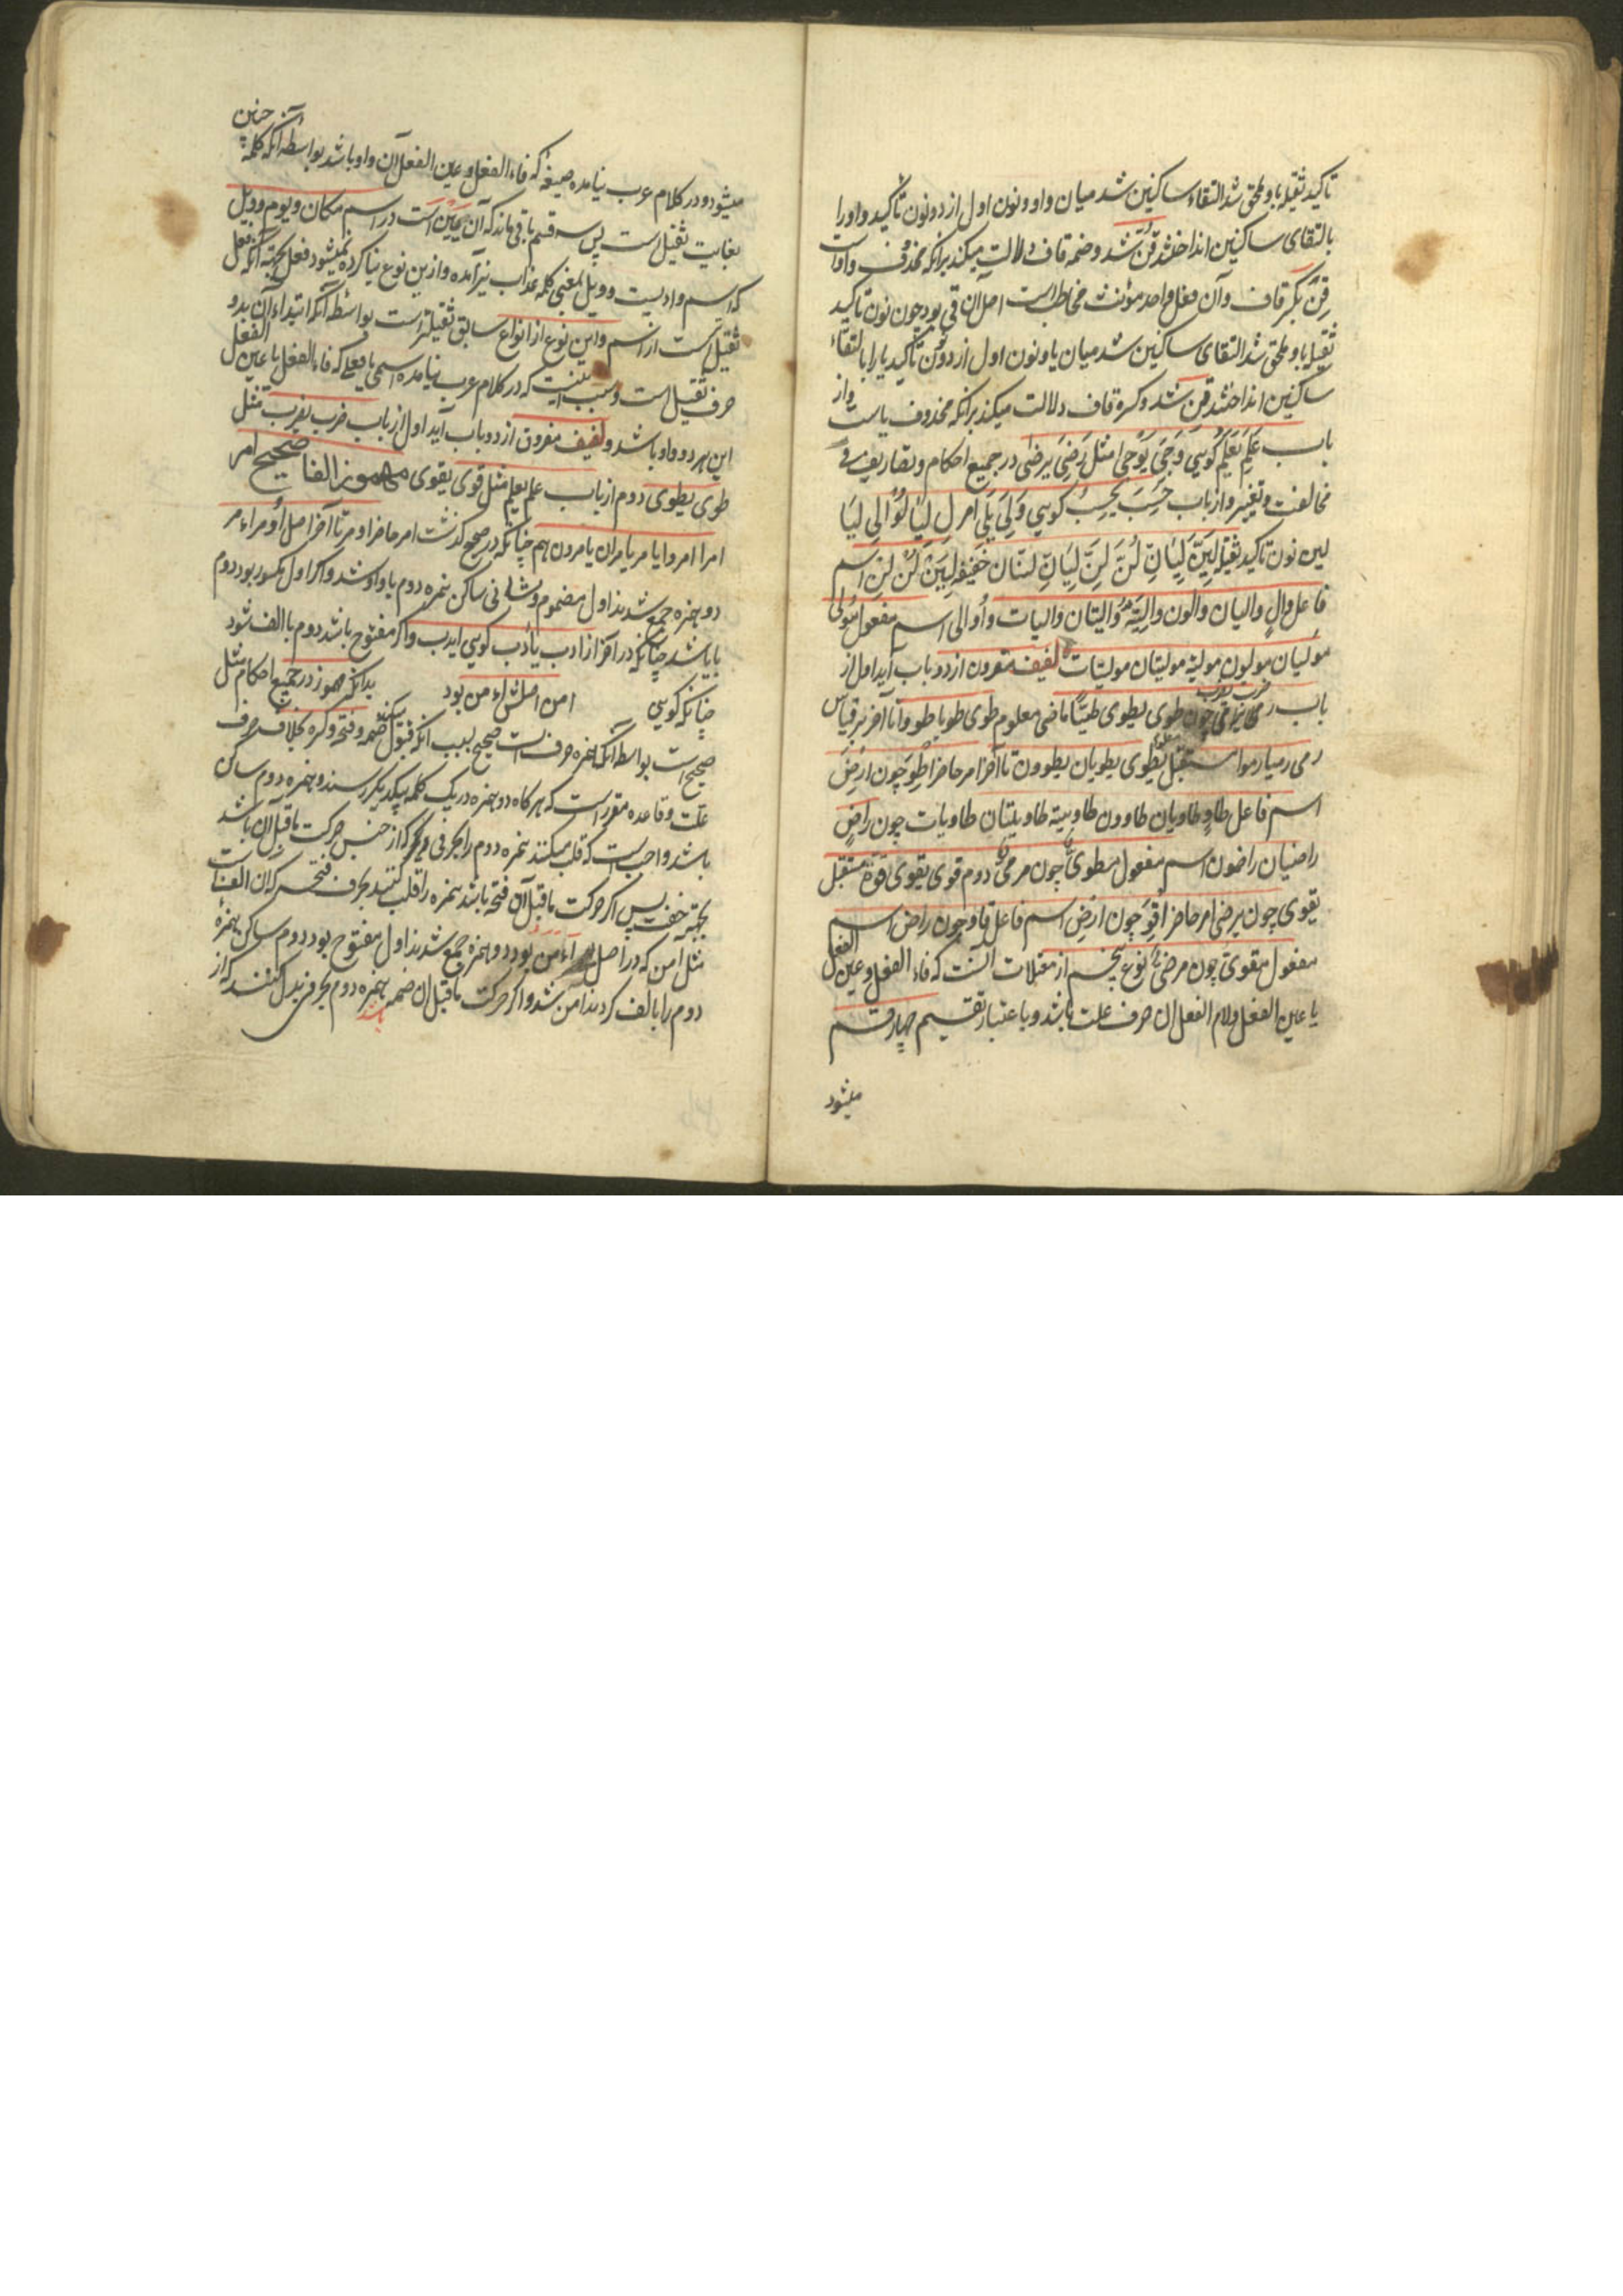 تاکید ثقیله باو ملحق شد التقاء ساکنین شد میان واو و نون اول از دو نون تاکید واو را
بالتقای ساکنین انداختند قُنَّ شد و ضمه قاف دلالت میکند برانکه محذوف واو است
قِنَّ بکسر قاف و آن فعل واحد مؤنث مخاطبه است اصل آن قی بود چون نون تاکید
ثقیله باو ملحق شد التقای ساکنین شد میان یا و نون اول از دو نون تاکید یا را بالتقاء
ساکنین انداختند قِنَّ شد و کسره قاف دلالت میکند برانکه محذوف یاست و از
باب عَلِمَ یَعْلَمُ کویی وَجِیَ یَوْجی مثل رَضِیَ یَرضی در جمیع احکام و تصاریف بی
مخالفت و تغییر و از باب حَسِبَ یَحسِبُ کویی وَلِیَ یَلِی امر لِ لِیَا لُوا لِی لِیَا
لین نون تاکید ثقیله لِیَنَّ لِیَانِّ لُنَّ لِنَّ لِیَانِّ لینانّ خفیفه لِیَنْ لُنْ لِنْ اسم
فاعل والٍ والیان والون والیة والیتان والیات و اوالی اسم مفعول مولی
مولیان مولیون مولیة مولیتان مولیات لفیف مقرون از دو باب آید اول از
باب ضرب یضرب چون طوی یطوی طیّاً ماضی معلوم طوی طویا طووا تا آخر بر قیاس
رمی رمیا رموا مستقبل معلوم یطوی یطویان یطوون تا آخر امر حاضر اِطْوِ چون ارضَ
اسم فاعل طاوٍ طاویان طاوون طاویة طاویتان طاویات چون راضٍ
راضیان راضون اسم مفعول مطویّ چون مرمیّ دوم قوی یقوی قوة مستقبل
یقوی چون یرضی امر حاضر اِقْوَ چون ارضَ اسم فاعل قاوٍ چون راضٍ اسم
مفعول مقویّ چون مرضیّ نوع پنجم از معتلات آنست که فاء الفعل و عین الفعل
یا عین الفعل و لام الفعل ان حرف علت باشد و باعتبار تقسیم چهار قسم
میشود
میشود و در کلام عرب نیامده صیغهٔ که فاء الفعل و عین الفعل آن واو باشد بواسطه آنکه کلمهٔ چنین
بغایت ثقیل است پس سه قسم باقی ماند که آن یَیِن است در اسم مکان و یوم و ویل
که اسم وادیست و ویل بمعنی کلمه عذاب نیز آمده و ازین نوع بنا کرده نمیشود فعل بجهة آنکه فعل
ثقیل است از اسم و این نوع از انواع سابق ثقیلتر است بواسطه آنکه ابتداء آن بدو
حرف ثقیل است و سبب اینست که در کلام عرب نیامده اسمی یا فعلی که فاء الفعل یا عین الفعل
این هر دو واو باشد و لفیف مفرون از دو باب آید اول از باب ضرب یضرب مثل
طوی یطوی دوم از باب علم یعلم مثل قوی یقوی مهموز الفا صحیح امر
امرا امروا یامر یامران یامرون هم چنانکه در صحیح کذشت امر حاضر اومر تا آخر اصل اُومر اءمر
دو همزه جمع شدند اول مضموم و ثانی ساکن همزه دوم با واو شد و اکر اول مکسور بود دوم
بایا شد چنانکه در آخر از ادب یأدب کویی ایدب و اکر مفتوح باشد دوم با الف شود
چنانکه کویی امن اصلش اءمن بود بدانکه مهموز در جمیع احکام مثل
صحیح است بواسطه آنکه همزه حرفست صحیح بسبب انکه قبول میکند ضمه و فتحه و کسره بخلاف حرف
علت و قاعده مقرر است که هرکاه دو همزه در یک کلمه بیکدیکر رسند و همزه دوم ساکن
باشد واجب است که قلب میکنند همزه دوم را بحرفی که از جنس حرکت ماقبل آن باشد
بجهة خفت پس اکر حرکت ماقبل آن فتحه باشد همزه را قلب کنند بحرف فتحه که ان الفست
مثل آمن که در اصل اءمن بود دو همزه جمع شدند اول مفتوح بود دوم ساکن همزهٔ
دوم را بالف کردند آمن شد و اکر حرکت ماقبل ان ضمه باشد همزه دوم بحرفی بدل کنند که از